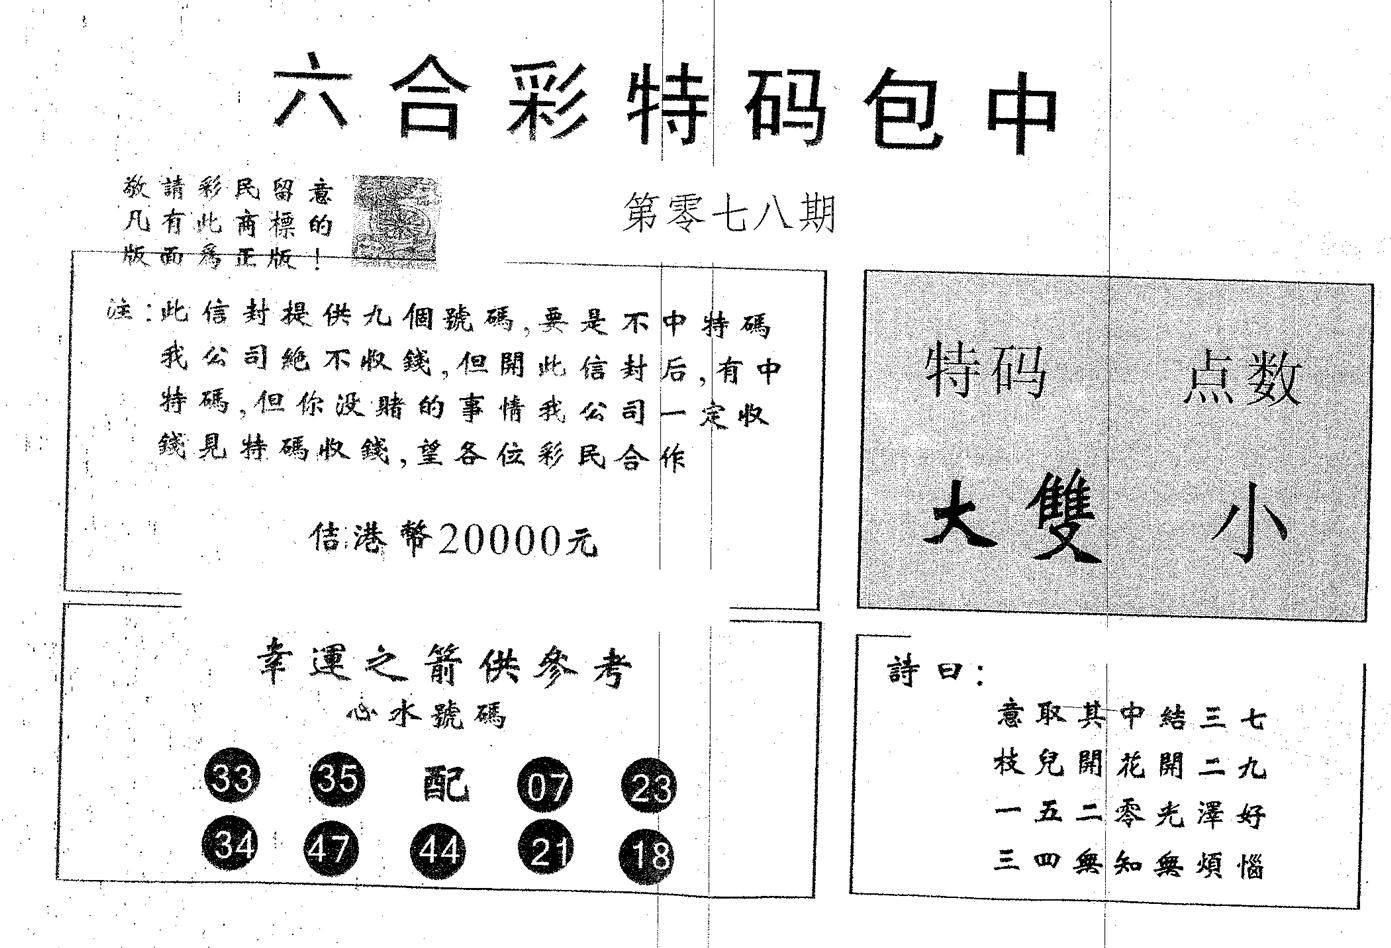 六合彩特码包中
敬請彩民留意
凡有此商標的
版面爲正版！
第零七八期
注：此信封提供九個號碼，要是不中特碼
我公司絶不收錢，但開此信封后，有中
特碼，但你没賭的事情我公司一定收
錢見特碼收錢，望各位彩民合作
佶港幣20000元
特码 点数
大雙 小
幸運之箭供參考
心水號碼
33 35 配 07 23
34 47 44 21 18
詩曰：
意取其中結三七
枝兒開花開二九
一五二零光澤好
三四無知無煩惱